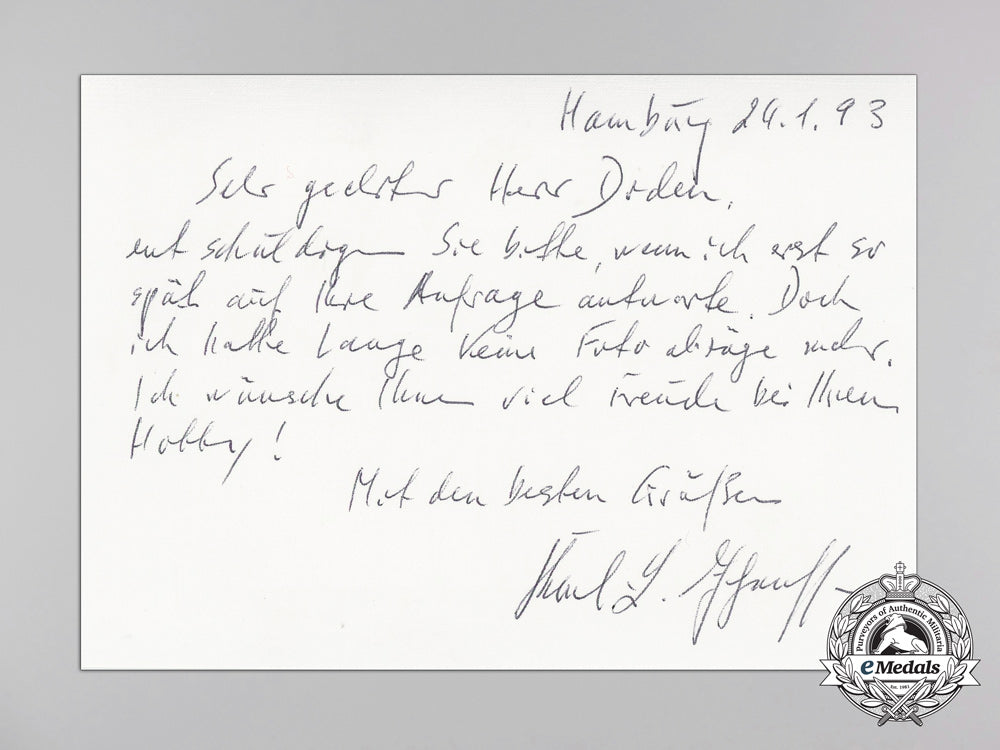 Hamburg 24.1.93
Sehr geehrter Herr Doden,
entschuldigen Sie bitte, wenn ich erst so
spät auf Ihre Anfrage antworte. Doch
ich hatte lange keine Fotoabzüge mehr.
Ich wünsche Ihnen viel Freude bei Ihrem
Hobby!
Mit den besten Grüßen
Purveyors of Authentic Militaria
eMedals
Est. 1981